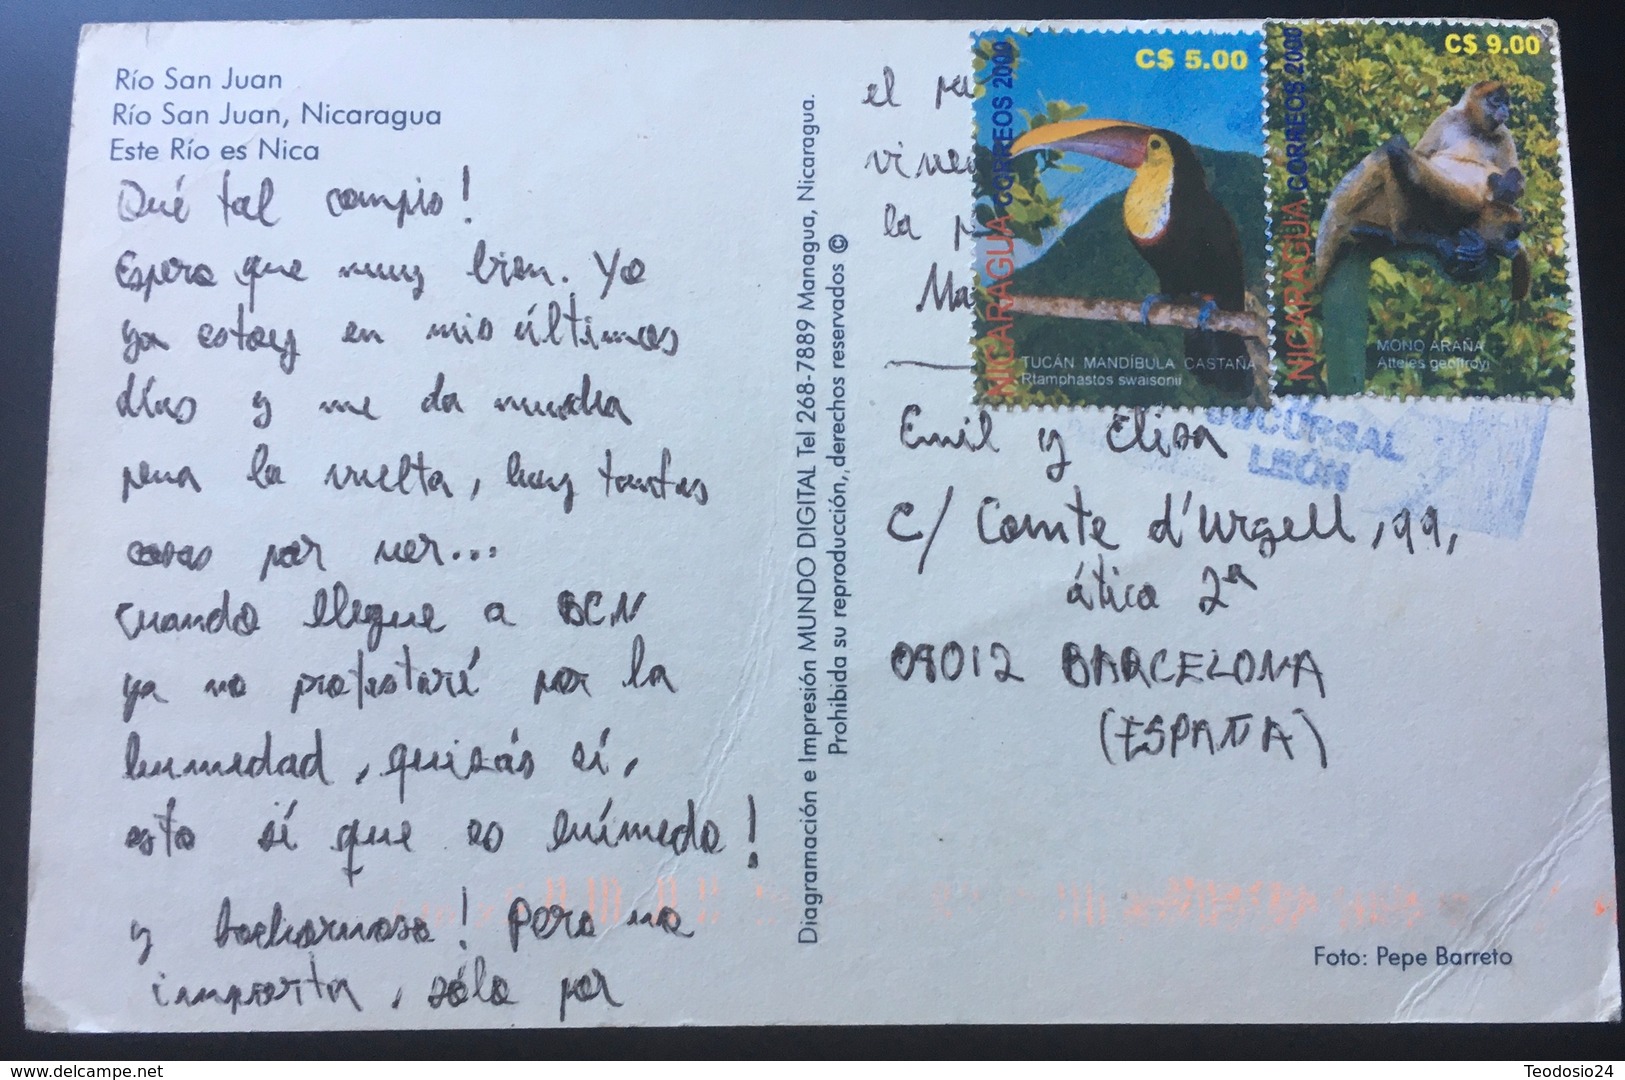 Río San Juan
Río San Juan, Nicaragua
Este Río es Nica
Qué tal compis!
Espero que muy bien. Yo
ya estoy en mis últimos
días y me da mucha
pena la vuelta, hay tantas
cosas por ver...
Cuando llegue a BCN
ya no protestaré por la
humedad, quizás sí,
esto sí que es húmedo!
y bochornoso! Pero no
importa, sólo por
Diagramación e Impresión MUNDO DIGITAL Tel 268-7889 Managua, Nicaragua.
Prohibida su reproducción, derechos reservados ©
el
la
C$ 5.00
NICARAGUA CORREOS 2000
TUCÁN MANDÍBULA CASTAÑA
Rtamphastos swaisonii
C$ 9.00
NICARAGUA CORREOS 2000
MONO ARAÑA
Atteles geoffroyi
SUCURSAL
LEÓN
Emil y Elisa
C/ Comte d'Urgell, 99,
ático 2ª
08012 BARCELONA
(ESPAÑA)
Foto: Pepe Barreto
delcampe.net
Teodosio24